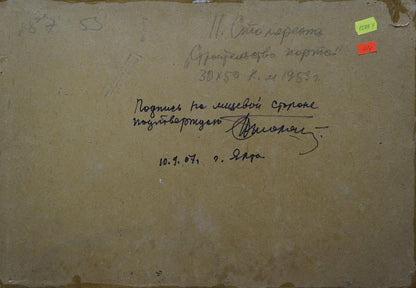 53
П. Столяренко
Строительство порта
30х50 к.м 1953 г.
Подпись на лицевой стороне
подтверждаю
10.9.07. г. Ялта